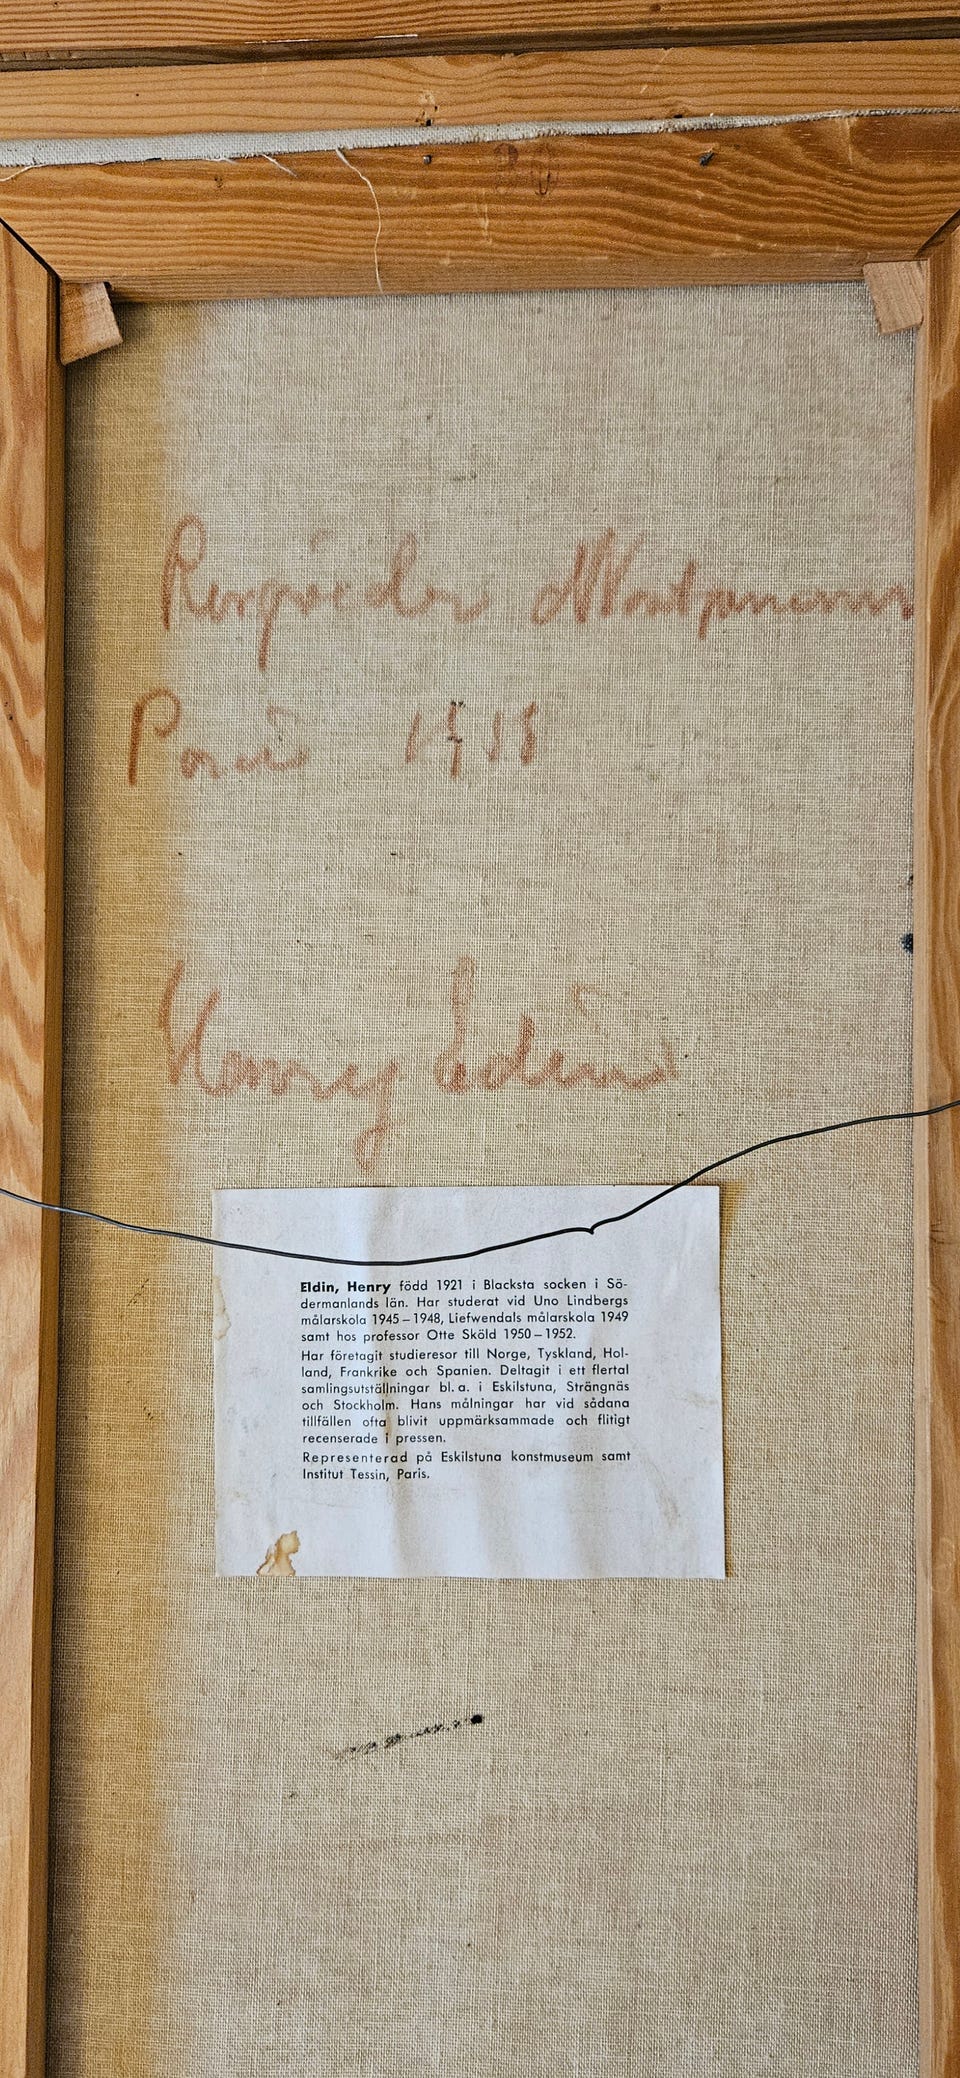 Paris
Henry Eldin
Eldin, Henry född 1921 i Blacksta socken i Sö-
dermanlands län. Har studerat vid Uno Lindbergs
målarskola 1945–1948, Liefwendals målarskola 1949
samt hos professor Otte Sköld 1950–1952.
Har företagit studieresor till Norge, Tyskland, Hol-
land, Frankrike och Spanien. Deltagit i ett flertal
samlingsutställningar bl. a. i Eskilstuna, Strängnäs
och Stockholm. Hans målningar har vid sådana
tillfällen ofta blivit uppmärksammade och flitigt
recenserade i pressen.
Representerad på Eskilstuna konstmuseum samt
Institut Tessin, Paris.